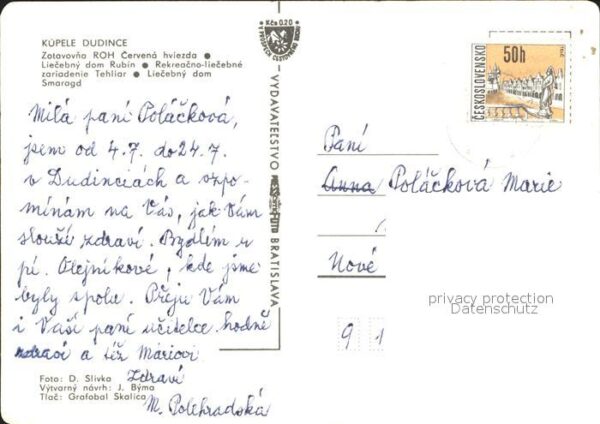 KÚPELE DUDINCE
Zotavovňa ROH Červená hviezda ●
Liečebný dom Rubín ● Rekreačno-liečebné
zariadenie Tehliar ● Liečebný dom
Smaragd
Milá paní Poláčková,
jsem od 4.7. do 24.7.
v Dudincích a vzpo-
mínám na Vás, jak Vám
slouží zdraví. Bydlím u
pí. Olejníkové, kde jsme
byly spolu. Přeju Vám
i Vaší paní učitelce hodně
zdraví a též Máriovi
Zdraví
M. Polehradská
Foto: D. Slivka
Výtvarný návrh: J. Býma
Tlač: Grafobal Skalica
Kčs 0.20
VYDAVATEĽSTVO
BRATISLAVA
ČESKOSLOVENSKO
50h
Paní
Anna Poláčková Marie
Nové
privacy protection
Datenschutz
9 1